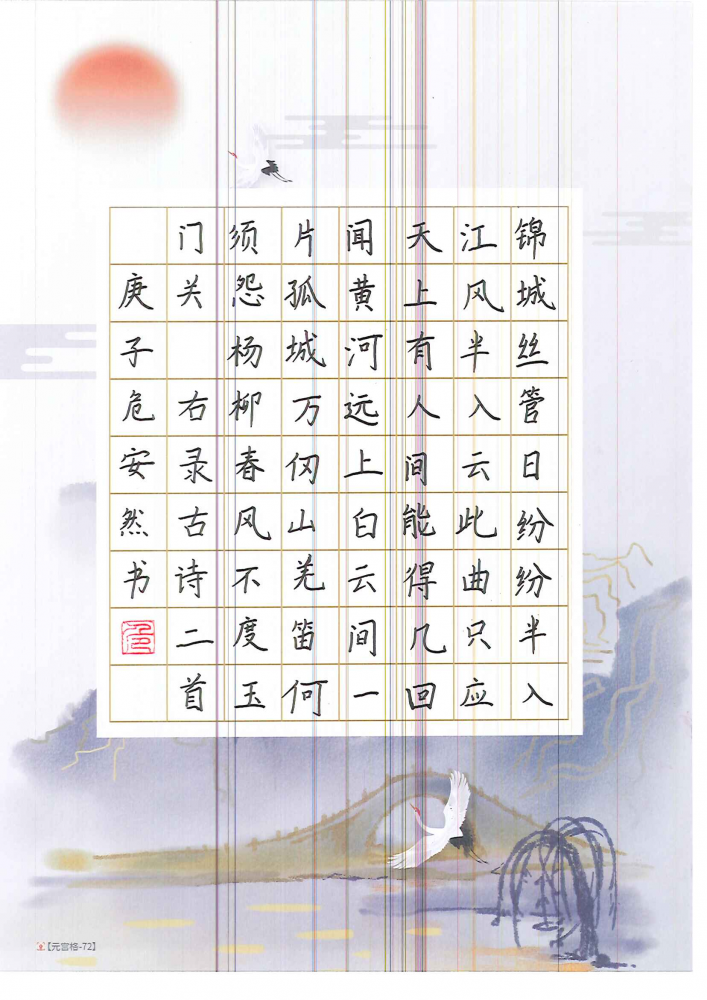 锦城丝管日纷纷半入
江风半入云此曲只应
天上有人间能得几回
闻黄河远上白云间一
片孤城万仞山羌笛何
须怨杨柳春风不度玉
门关 右录古诗二首
庚子危安然书
【元宫格-72】